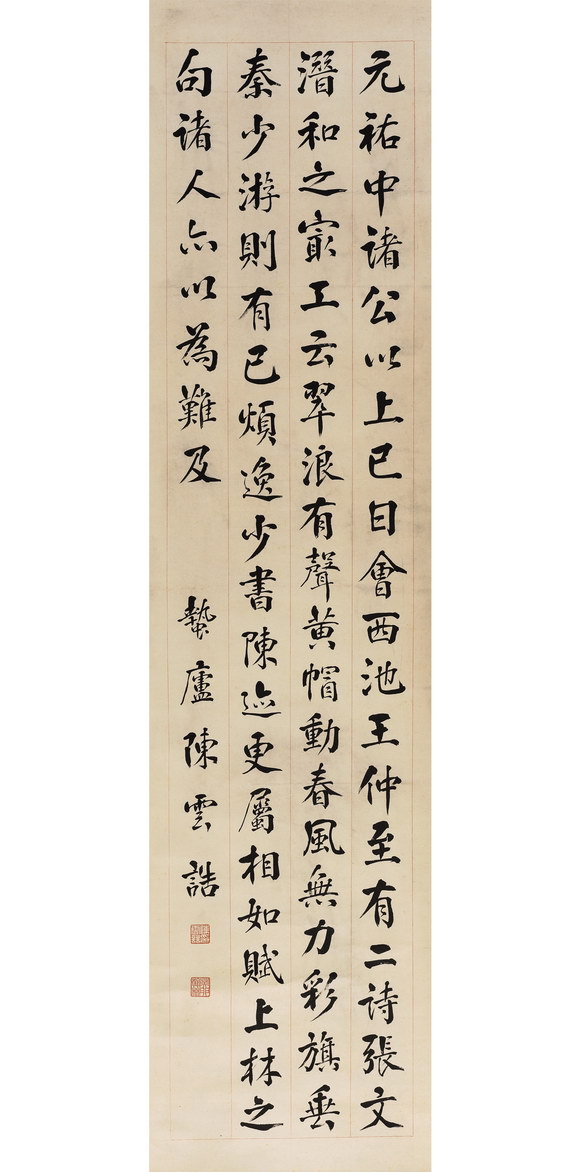 元祐中諸公以上巳日會西池王仲至有二詩張文
潛和之冣工云翠浪有聲黄帽動春風無力彩旗垂
秦少游則有已煩逸少書陳迹更屬相如賦上林之
句諸人亦以為難及
蟄廬陳雲誥